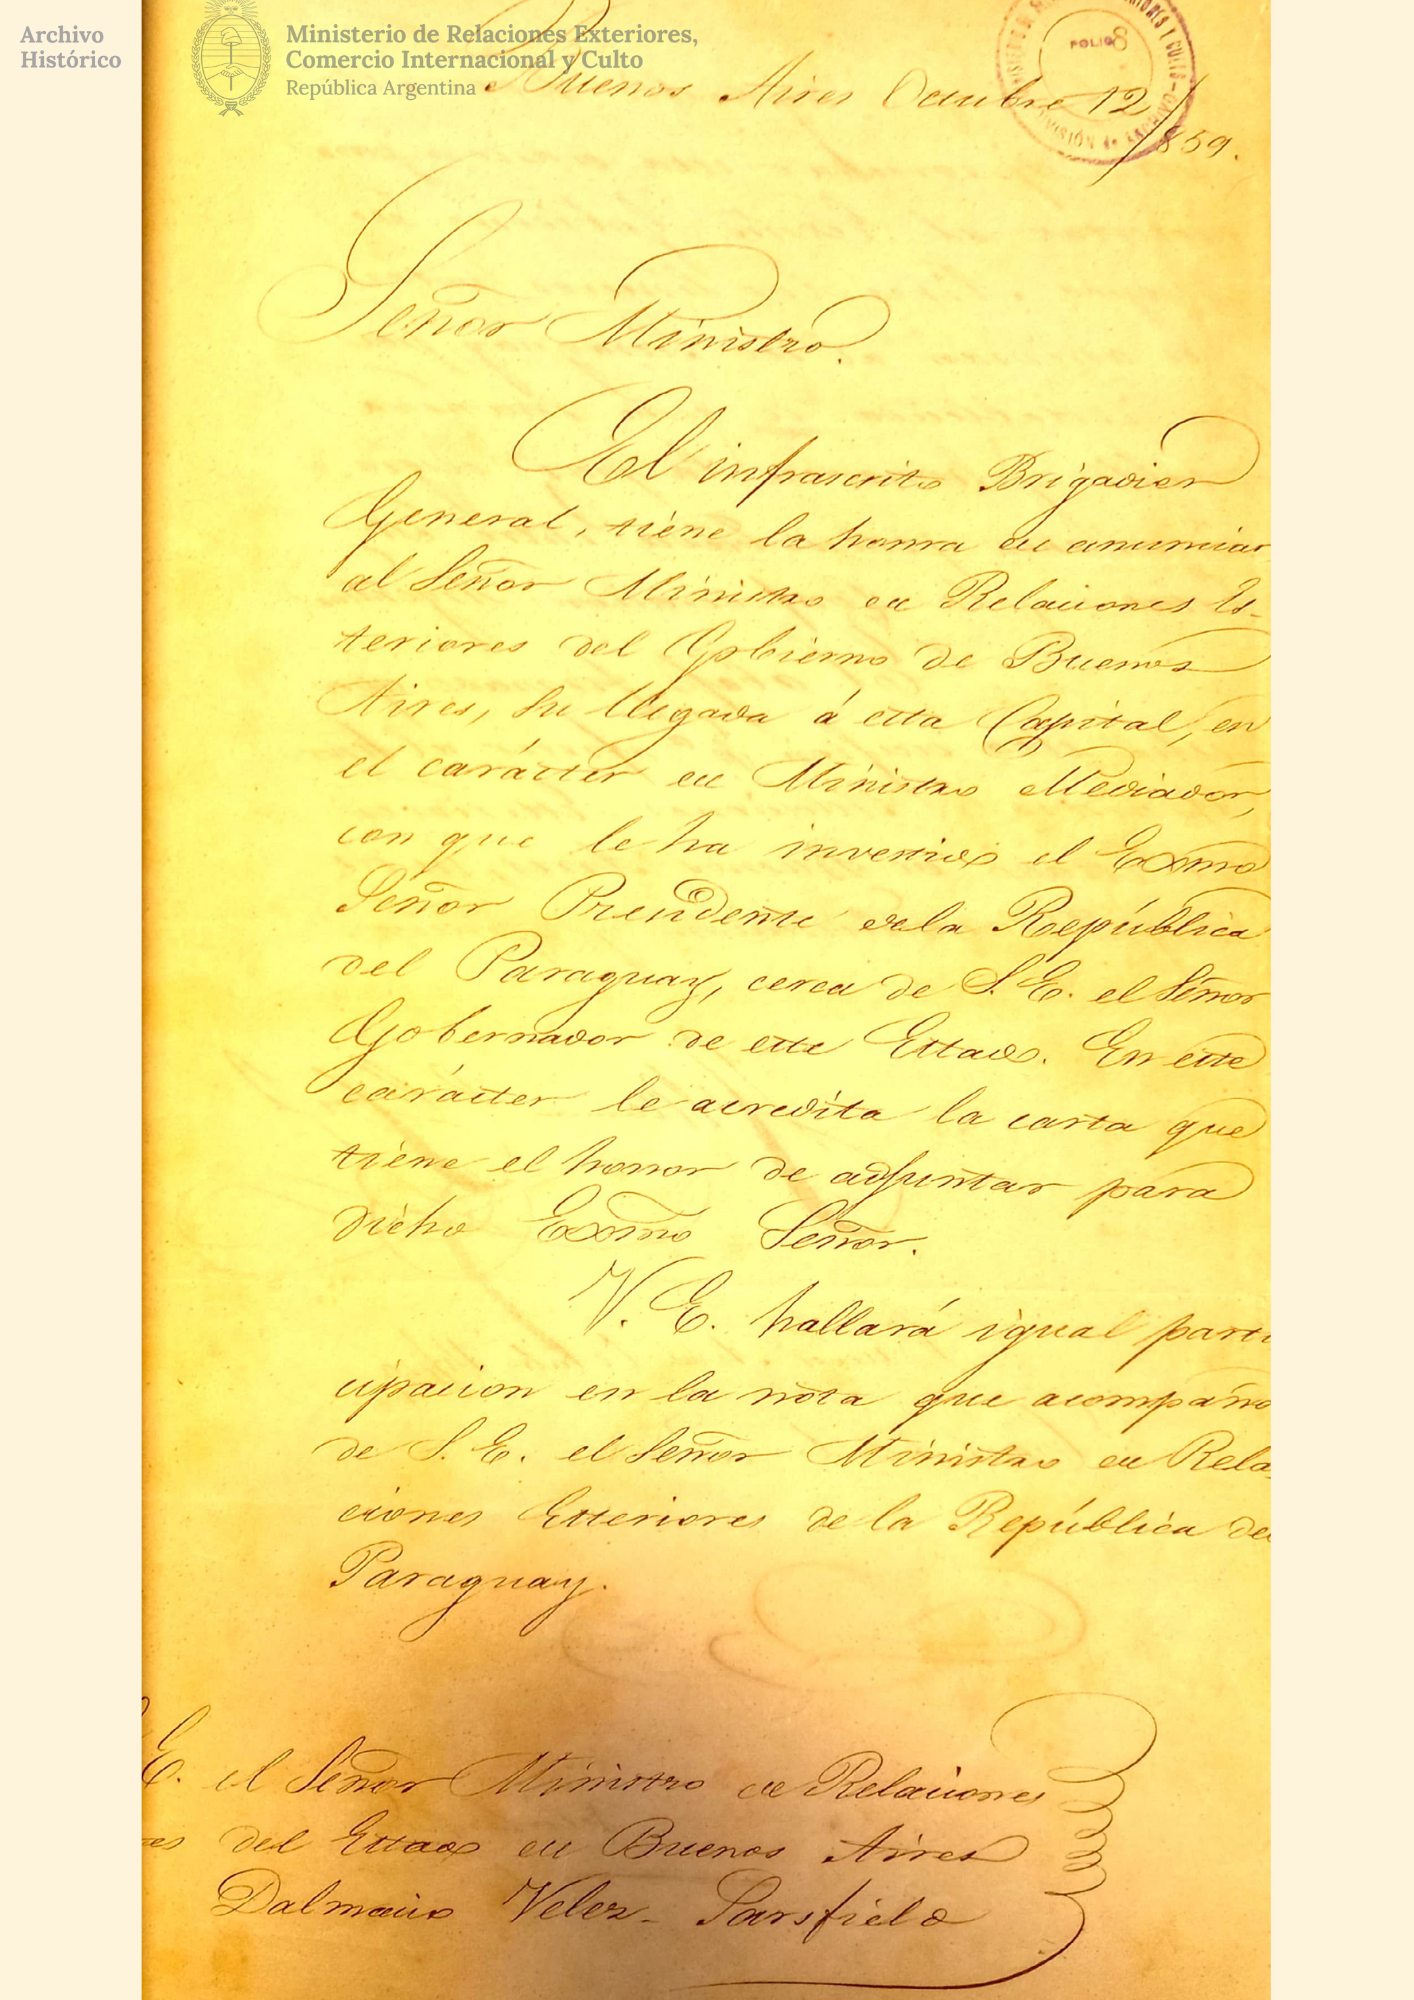 Archivo
Histórico
Ministerio de Relaciones Exteriores,
Comercio Internacional y Culto
República Argentina
FOLIO 8
Buenos Aires Octubre 12
1859.
Señor Ministro.
El infrascrito Brigadier
General, tiene la honra de anunciar
al Señor Ministro de Relaciones Es-
teriores del Gobierno de Buenos
Aires, su llegada á esta Capital, en
el carácter de Ministro Mediador,
con que le ha investido el Exmo
Señor Presidente de la República
del Paraguay, cerca de S. E. el Señor
Gobernador de este Estado. En este
carácter le acredita la carta que
tiene el honor de adjuntar para
dicho Exmo Señor.
V. E. hallará igual parti
cipacion en la nota que acompaño
de S. E. el Señor Ministro de Rela
ciones Esteriores de la República del
Paraguay.
E. el Señor Ministro de Relaciones
es del Estado de Buenos Aires
Dalmacio Velez-Sarsfield